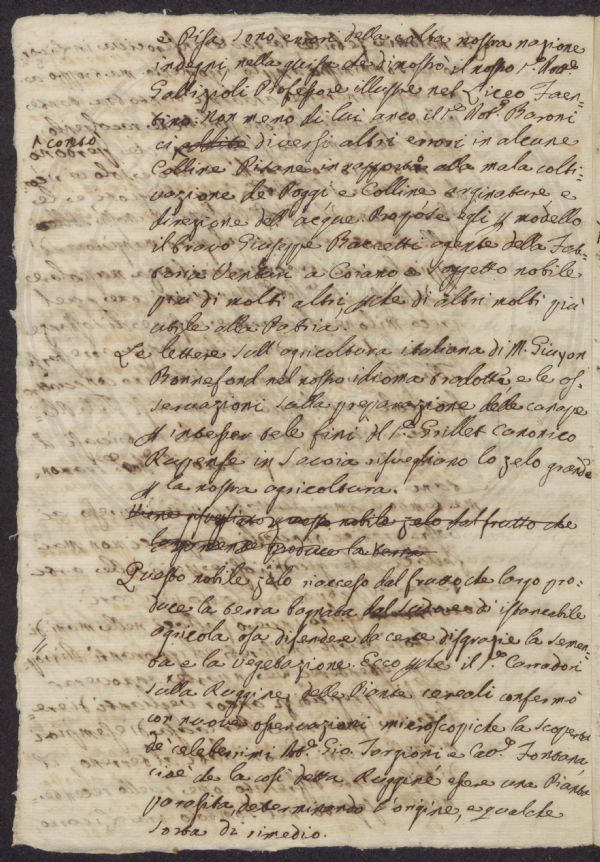 e Pisa sono errori della colta nostra nazione
indegni, nella guisa che dimostrò il nostro S.r Dott.e
Gallizioli Professore illustre nel Liceo Faen-
tino. Non meno di lui anco il S.r Dot.r Baroni
^ censo
ci additò diversi altri errori in alcune
Colline Pisane in rapporto alla mala colti-
vazione de Poggi e Colline arginature e
direzione dell'acque. Propose egli p modello
il bravo Giuseppe Baccetti agente della Fat-
toria Venturi a Coiano e soggetto nobile
più di molti altri, pche di altri molti più
utile alla Patria.
Le lettere sull'agricoltura italiana di M.
Bonnefond nel nostro idioma tradotte, e le os-
servazioni sulla preparazione delle canape
p intesser tele fini del S.r Grillet canonico
in Savoia risvegliano lo zelo grande
p la nostra agricoltura.
Viene risvegliato questo nobile zelo dal frutto che
produce la terra
Questo nobile zelo racceso dal frutto che largo pro-
duce la terra bagnata dal sudore di instancabile
agricola osa difendere da certe disgrazie la semen-
ta e la vegetazione. Ecco pche il S.r Carradori
sulla Ruggine delle Piante cereali confermò
con nuove osservazioni microscopiche la scoperta
de celeberrimi Dot.r Gio. Targioni e Cav.r Fontana,
cioè che la così detta Ruggine essere una Pianta
parasita, determinando l'origine, e qualche
sorta di rimedio.